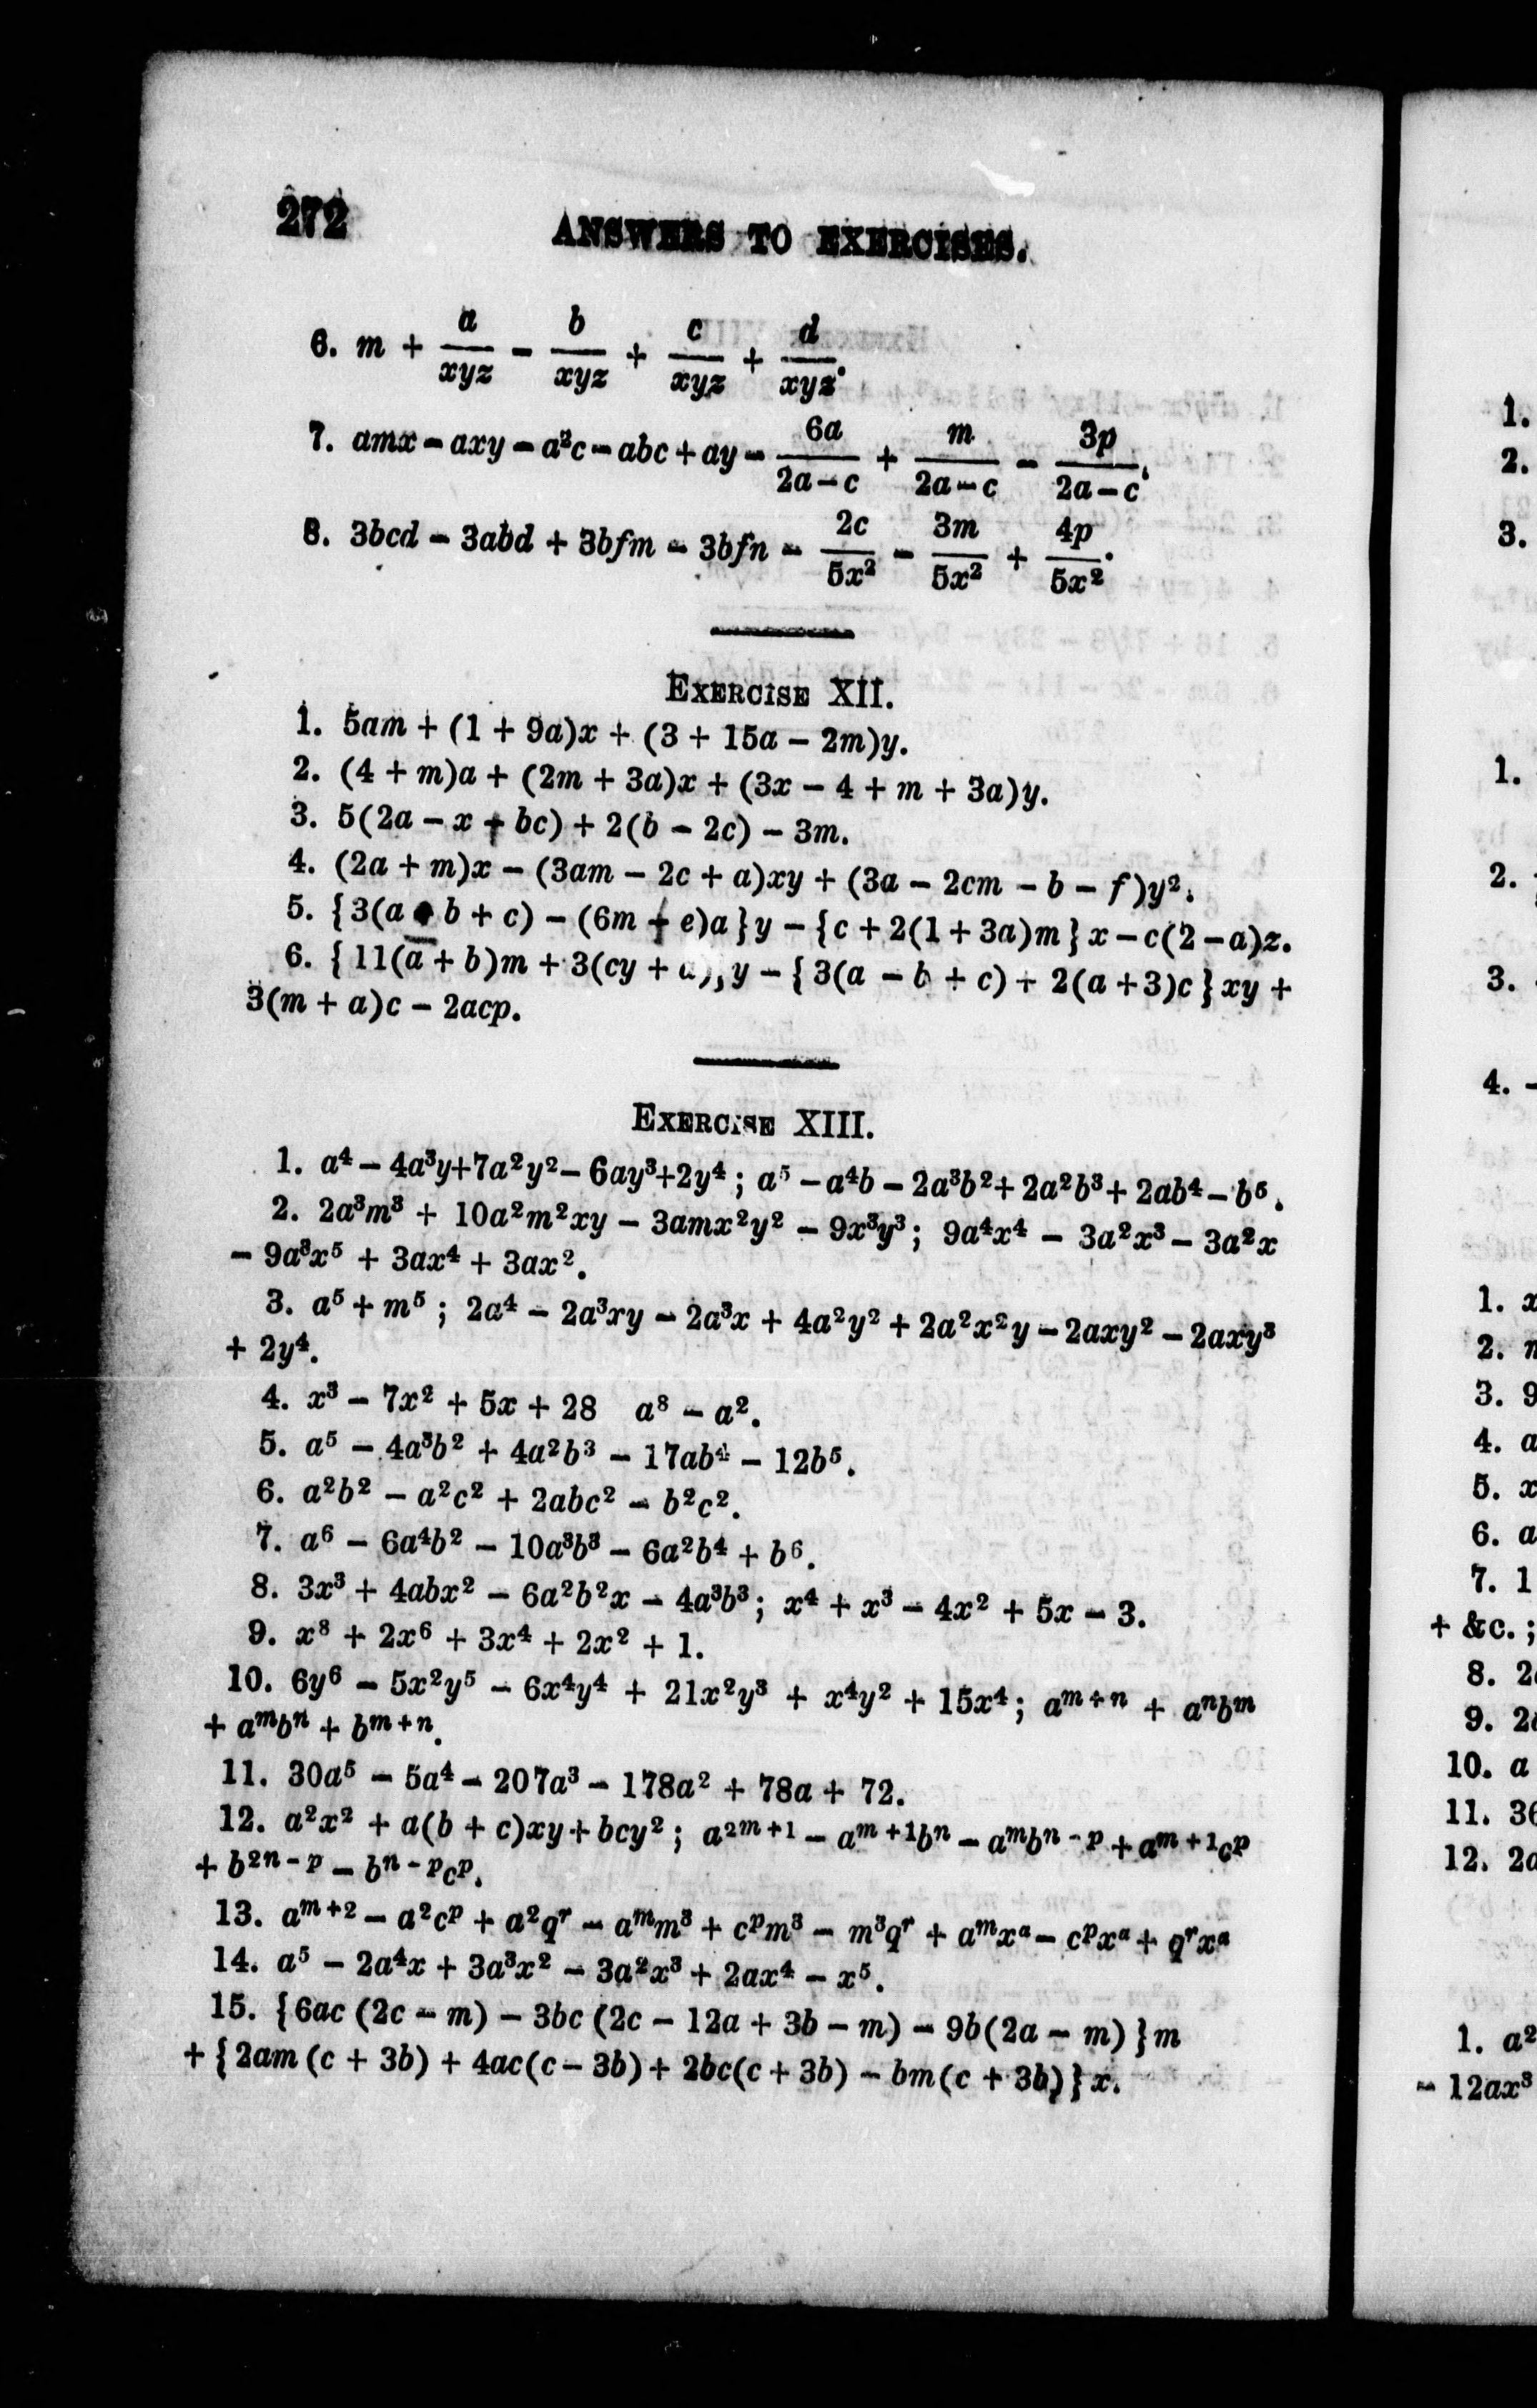 272 ANSWERS TO EXERCISES.
6. m + a/xyz − b/xyz + c/xyz + d/xyz.
7. amx − axy − a²c − abc + ay − 6a/(2a−c) + m/(2a−c) − 3p/(2a−c).
8. 3bcd − 3abd + 3bfm − 3bfn − 2c/5x² − 3m/5x² + 4p/5x².
EXERCISE XII.
1. 5am + (1 + 9a)x + (3 + 15a − 2m)y.
2. (4 + m)a + (2m + 3a)x + (3x − 4 + m + 3a)y.
3. 5(2a − x + bc) + 2(b − 2c) − 3m.
4. (2a + m)x − (3am − 2c + a)xy + (3a − 2cm − b − f)y².
5. {3(a b + c) − (6m + e)a}y − {c + 2(1 + 3a)m}x − c(2 − a)z.
6. {11(a + b)m + 3(cy + y − {3(a − b + c) + 2(a + 3)c}xy +
3(m + a)c − 2acp.
EXERCISE XIII.
1. a⁴ − 4a³y+7a²y²− 6ay³+2y⁴; a⁵ − a⁴b − 2a³b²+ 2a²b³+ 2ab⁴ − b⁵.
2. 2a³m³ + 10a²m²xy − 3amx²y² − 9x³y³; 9a⁴x⁴ − 3a²x³ − 3a²x
− 9a³x⁵ + 3ax⁴ + 3ax².
3. a⁵ + m⁵; 2a⁴ − 2a³xy − 2a³x + 4a²y² + 2a²x²y − 2axy² − 2axy³
+ 2y⁴.
4. x³ − 7x² + 5x + 28 a⁸ − a².
5. a⁵ − 4a³b² + 4a²b³ − 17ab⁴ − 12b⁵.
6. a²b² − a²c² + 2abc² − b²c².
7. a⁶ − 6a⁴b² − 10a³b³ − 6a²b⁴ + b⁶.
8. 3x³ + 4abx² − 6a²b²x − 4a³b³; x⁴ + x³ − 4x² + 5x − 3.
9. x⁸ + 2x⁶ + 3x⁴ + 2x² + 1.
10. 6y⁶ − 5x²y⁵ − 6x⁴y⁴ + 21x²y³ + x⁴y² + 15x⁴; aᵐ⁺ⁿ + aⁿbᵐ
+ aᵐbⁿ + bᵐ⁺ⁿ.
11. 30a⁵ − 5a⁴ − 207a³ − 178a² + 78a + 72.
12. a²x² + a(b + c)xy + bcy²; a²ᵐ⁺¹ − aᵐ⁺¹bⁿ − aᵐbⁿ⁻ᵖ + aᵐ⁺¹cᵖ
+ b²ⁿ⁻ᵖ − bⁿ⁻ᵖcᵖ.
13. aᵐ⁺² − a²cᵖ + a²qʳ − aᵐm³ + cᵖm³ − m³qʳ + aᵐxᵃ − cᵖxᵃ + qʳxᵃ
14. a⁵ − 2a⁴x + 3a³x² − 3a²x³ + 2ax⁴ − x⁵.
15. {6ac (2c − m) − 3bc (2c − 12a + 3b − m) − 9b(2a − m)}m
+ {2am (c + 3b) + 4ac(c − 3b) + 2bc(c + 3b) − bm(c + 3b)}x.
1.
2.
3.
1.
2.
3.
4. −
1. x
2.
3. 9
4. a
5. x
6. a
7. 1
+ &c.;
8. 2
9. 2
10. a
11. 36
12. 2a
1. a²
− 12ax³